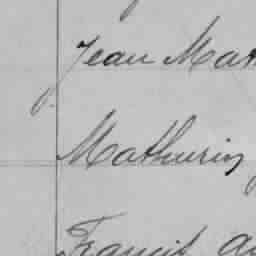 Jean Mat
Mathurin
Francis